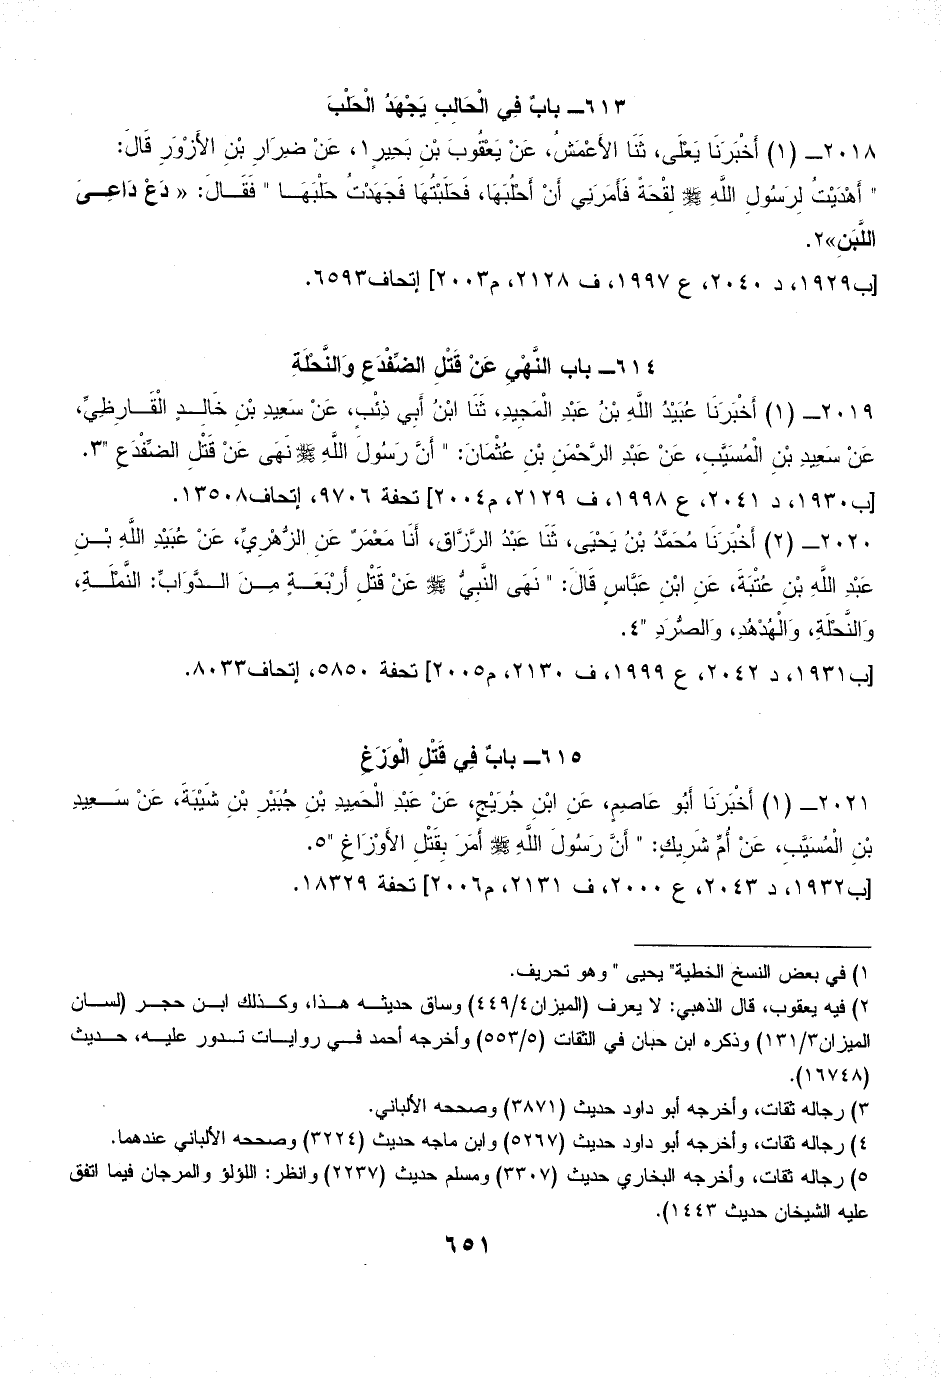 ٦١٣ـ بابٌ فِي الْحَالِبِ يَجْهَدُ الْحَلْبَ
٢٠١٨ـ (١) أَخْبَرَنَا يَعْلَى، ثَنَا الأَعْمَشُ، عَنْ يَعْقُوبَ بْنِ بَحِيرٍ١، عَنْ ضِرَارِ بْنِ الأَزْوَرِ قَالَ:
" أَهْدَيْتُ لِرَسُولِ اللَّهِ ﷺ لِقْحَةً فَأَمَرَنِي أَنْ أَحْلُبَهَا، فَحَلَبْتُهَا فَجَهَدْتُ حَلْبَهَا " فَقَالَ: « دَعْ دَاعِيَ
اللَّبَنِ»٢.
[ب١٩٢٩، د ٢٠٤٠، ع ١٩٩٧، ف ٢١٢٨، م٢٠٠٣] إتحاف٦٥٩٣.
٦١٤ـ باب النَّهْيِ عَنْ قَتْلِ الضِّفْدَعِ وَالنَّحْلَةِ
٢٠١٩ـ (١) أَخْبَرَنَا عُبَيْدُ اللَّهِ بْنُ عَبْدِ الْمَجِيدِ، ثَنَا ابْنُ أَبِي ذِئْبٍ، عَنْ سَعِيدِ بْنِ خَالِدٍ الْقَارِظِيِّ،
عَنْ سَعِيدِ بْنِ الْمُسَيَّبِ، عَنْ عَبْدِ الرَّحْمَنِ بْنِ عُثْمَانَ: " أَنَّ رَسُولَ اللَّهِ ﷺ نَهَى عَنْ قَتْلِ الضِّفْدَعِ "٣.
[ب١٩٣٠، د ٢٠٤١، ع ١٩٩٨، ف ٢١٢٩، م٢٠٠٤] تحفة ٩٧٠٦، إتحاف١٣٥٠٨.
٢٠٢٠ـ (٢) أَخْبَرَنَا مُحَمَّدُ بْنُ يَحْيَى، ثَنَا عَبْدُ الرَّزَّاقِ، أَنَا مَعْمَرٌ عَنِ الزُّهْرِيِّ، عَنْ عُبَيْدِ اللَّهِ بْنِ
عَبْدِ اللَّهِ بْنِ عُتْبَةَ، عَنِ ابْنِ عَبَّاسٍ قَالَ: " نَهَى النَّبِيُّ ﷺ عَنْ قَتْلِ أَرْبَعَةٍ مِنَ الدَّوَابِّ: النَّمْلَةِ،
وَالنَّحْلَةِ، وَالْهُدْهُدِ، وَالصُّرَدِ "٤.
[ب١٩٣١، د ٢٠٤٢، ع ١٩٩٩، ف ٢١٣٠، م٢٠٠٥] تحفة ٥٨٥٠، إتحاف٨٠٣٣.
٦١٥ـ بابٌ فِي قَتْلِ الْوَزَغِ
٢٠٢١ـ (١) أَخْبَرَنَا أَبُو عَاصِمٍ، عَنِ ابْنِ جُرَيْجٍ، عَنْ عَبْدِ الْحَمِيدِ بْنِ جُبَيْرِ بْنِ شَيْبَةَ، عَنْ سَعِيدِ
بْنِ الْمُسَيَّبِ، عَنْ أُمِّ شَرِيكٍ: " أَنَّ رَسُولَ اللَّهِ ﷺ أَمَرَ بِقَتْلِ الأَوْزَاغِ "٥.
[ب١٩٣٢، د ٢٠٤٣، ع ٢٠٠٠، ف ٢١٣١، م٢٠٠٦] تحفة ١٨٣٢٩.
١) في بعض النسخ الخطية" يحيى " وهو تحريف.
٢) فيه يعقوب، قال الذهبي: لا يعرف (الميزان٤/٤٤٩) وساق حديثه هذا، وكذلك ابن حجر (لسان
الميزان٣/١٣١) وذكره ابن حبان في الثقات (٥/٥٥٣) وأخرجه أحمد في روايات تدور عليه، حديث
(١٦٧٤٨).
٣) رجاله ثقات، وأخرجه أبو داود حديث (٣٨٧١) وصححه الألباني.
٤) رجاله ثقات، وأخرجه أبو داود حديث (٥٢٦٧) وابن ماجه حديث (٣٢٢٤) وصححه الألباني عندهما.
٥) رجاله ثقات، وأخرجه البخاري حديث (٣٣٠٧) ومسلم حديث (٢٢٣٧) وانظر: اللؤلؤ والمرجان فيما اتفق
عليه الشيخان حديث ١٤٤٣).
٦٥١